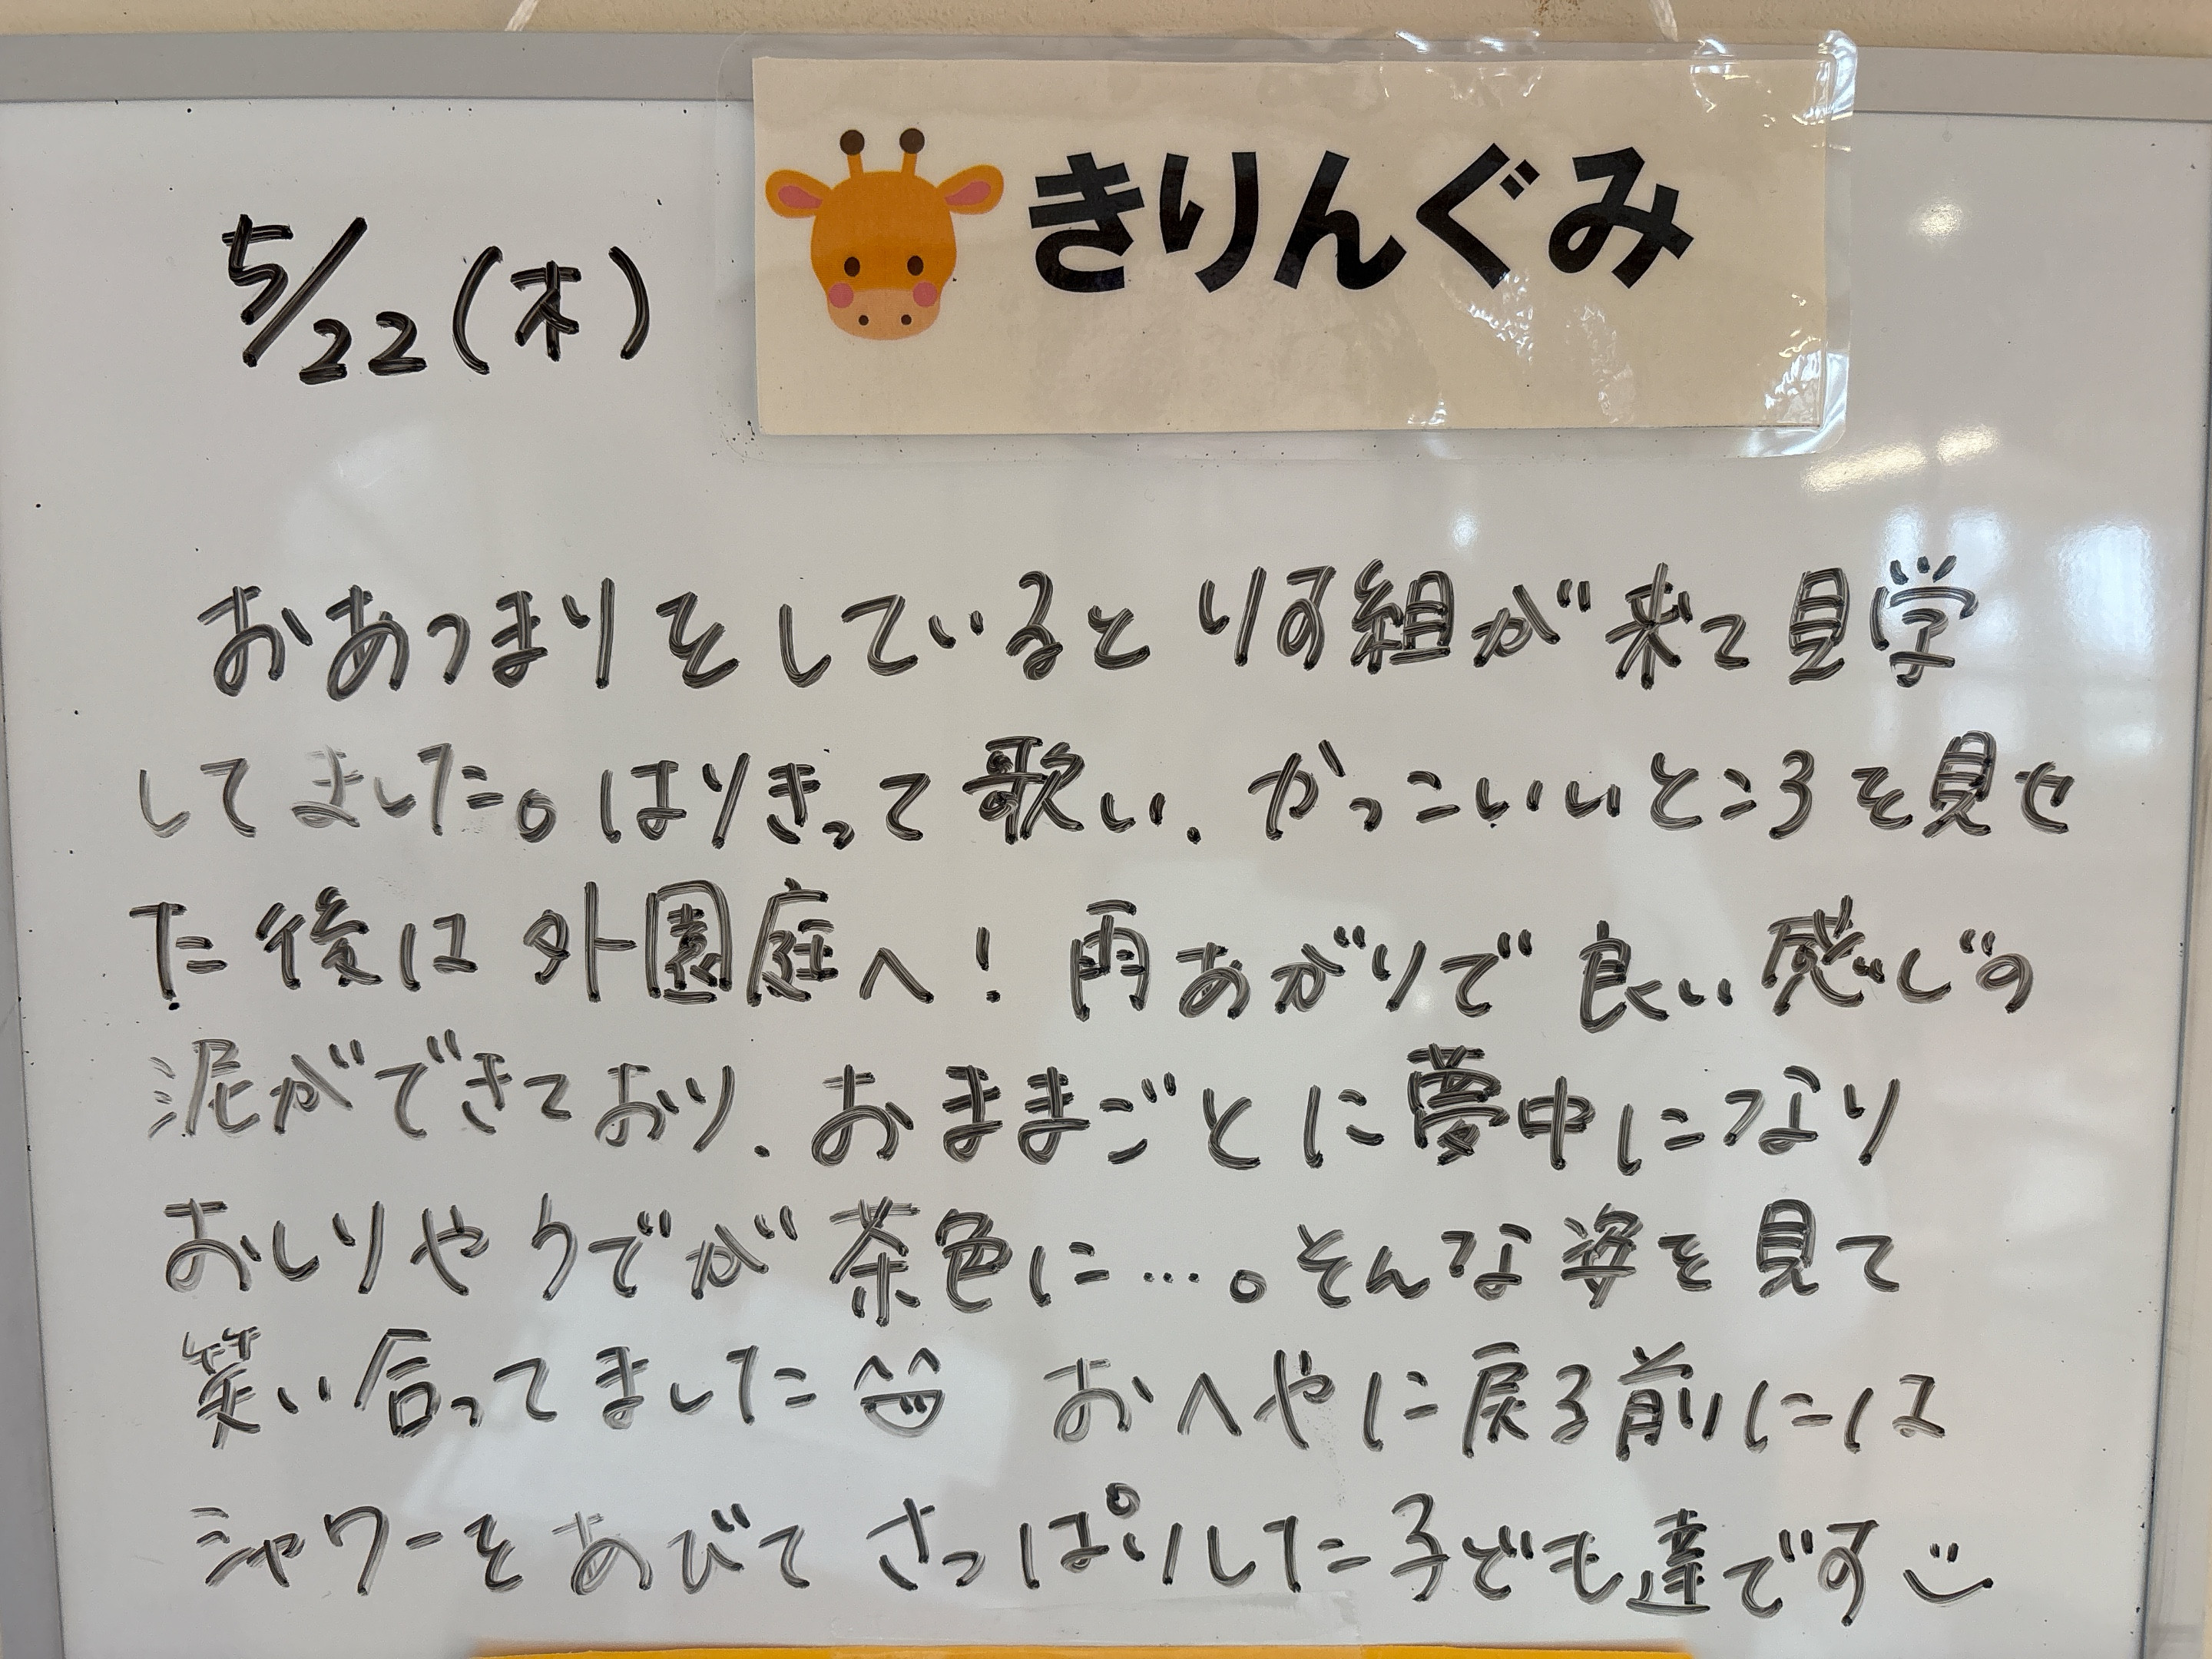 きりんぐみ
5/22(木)
おあつまりをしていると りす組が来て見学
してました。はりきって歌い、かっこいいところを見せ
た後は外園庭へ!雨あがりで良い感じの
泥ができており、おままごとに夢中になり
おしりやうでが茶色に…。そんな姿を見て
笑い合ってました おへやに戻る前には
シャワーをあびて さっぱりした子ども達です